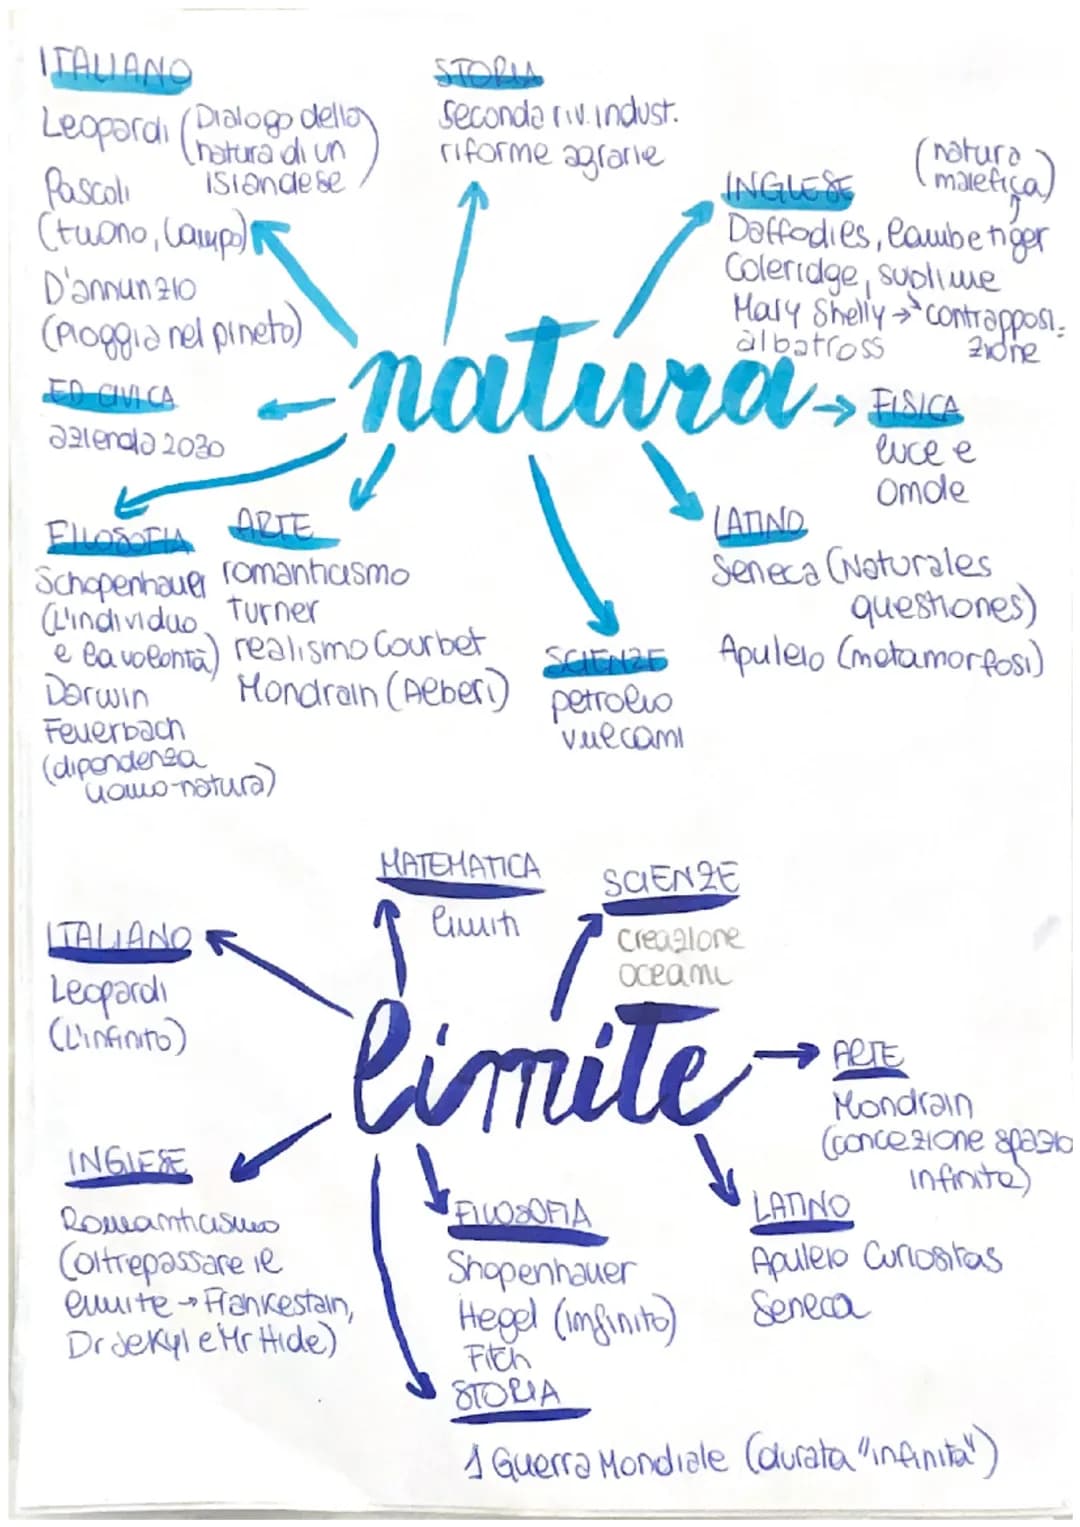 ITALIANO
Leopardi (Dialogo della
natura di un
islandese)
Pascoli
(tuono, lampo)
D'annunzio
(Pioggia nel pineto)
ED CIVICA
azienda 2030
STORIA
seconda riv. indust.
riforme agrarie
INGLESE
(natura
malefica)
Daffodies, lambe tiger
Coleridge, sublime
Mary Shelly → contrapposi-
zione
albatross
natura
→ FISICA
luce e
Omde
LATINO
Seneca (Naturales
questiones)
Apuleio (metamorfosi)
FILOSOFIA
Schopenhauer
(L'individuo
e la volontà)
Darwin
Feuerbach
(dipendenza
uomo-natura)
ARTE
romanticismo
Turner
realismo Courbet
Mondrain (Alberi)
SCIENZE
petrolio
vulcami
MATEMATICA
limiti
SCIENZE
creazione
oceami
ITALIANO
Leopardi
(L'infinito)
limite
→ ARTE
Mondrain
(concezione spazio
infinite)
INGLESE
Romanticismo
(oltrepassare il
limite → Frankestain,
Dr Jekyl e Mr Hide)
FILOSOFIA
Shopenhauer
Hegel (imfinito)
Fitch
LATINO
Apuleio Curiositas
Seneca
STORIA
1 Guerra Mondiale (durata "infinita")